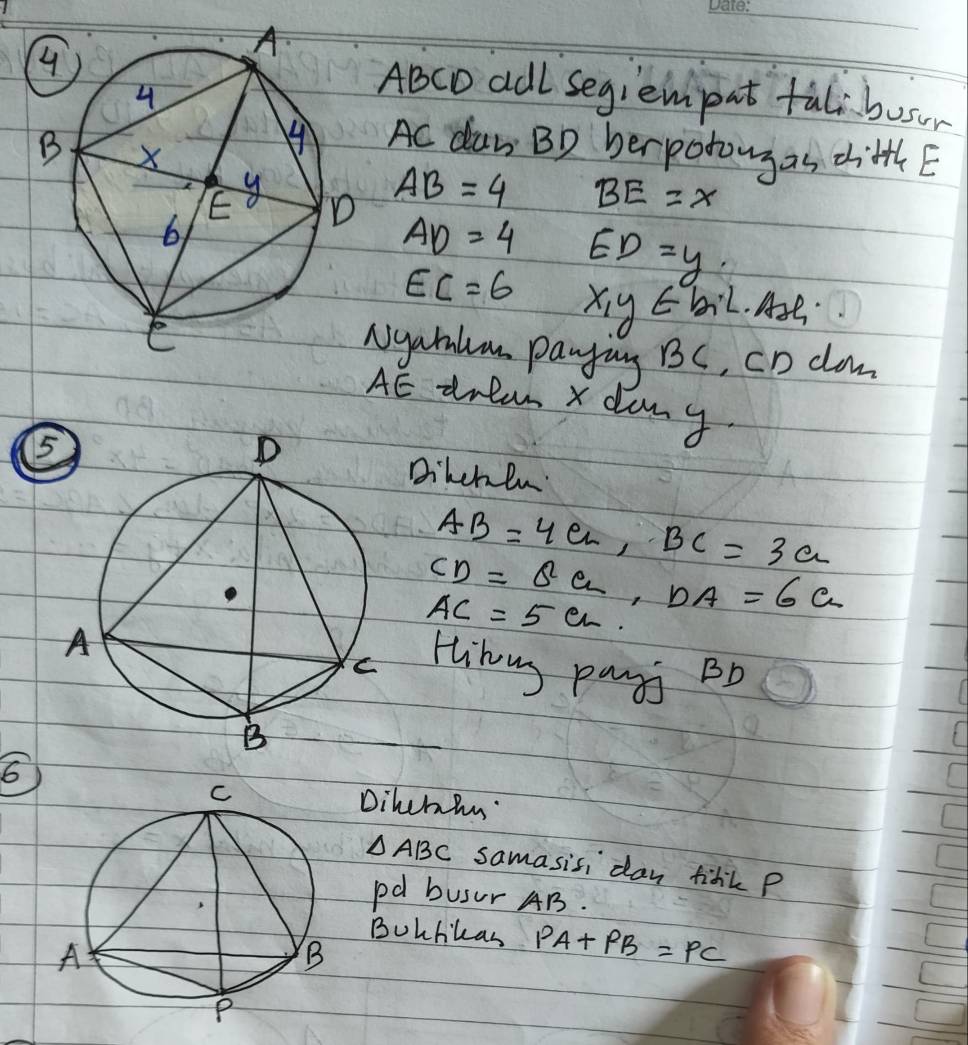 Date:
4
A
4
4
B
x
y
E
D
6
C
ABCD adl segiempat tali busur
AC dan BD berpotongan dittk E
AB = 4 BE = x
AD = 4 ED = y.
EC = 6 x,y E bil. Asli.
Nyatakan panjang BC, CD dan
AE dalam x dan y.
5
D
A
C
B
Diketahui
AB = 4 cm, BC = 3 cm
CD = 8 cm, DA = 6 cm
AC = 5 cm.
Hitung panj BD
6
C
A
B
P
Diketahui
△ABC samasisi dan titik P
pd busur AB.
Buktikan PA + PB = PC